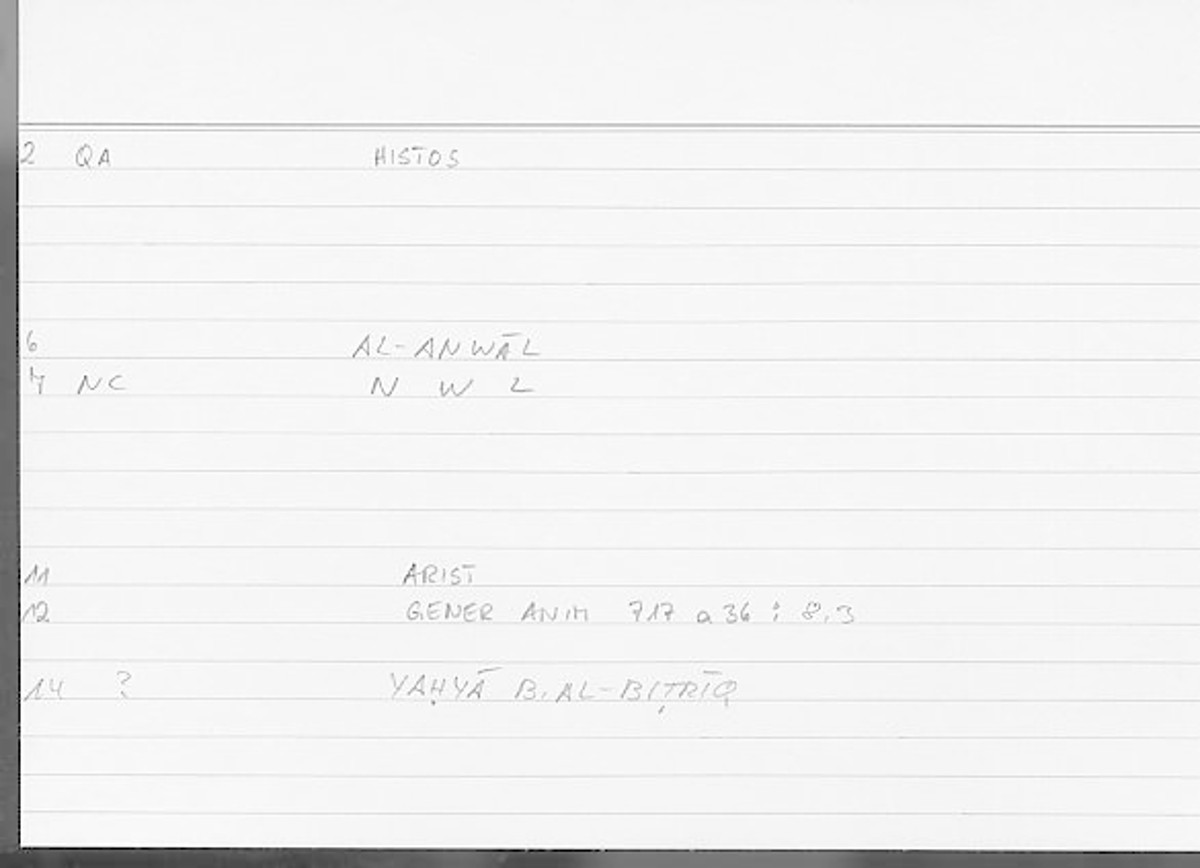 2 QA HISTOS
6 AL-ANWĀL
7 NC N W L
11 ARIST
12 GENER ANIM 717 a 36 : 8.3
14 ? YAḤYĀ B. AL-BIṬRĪQ